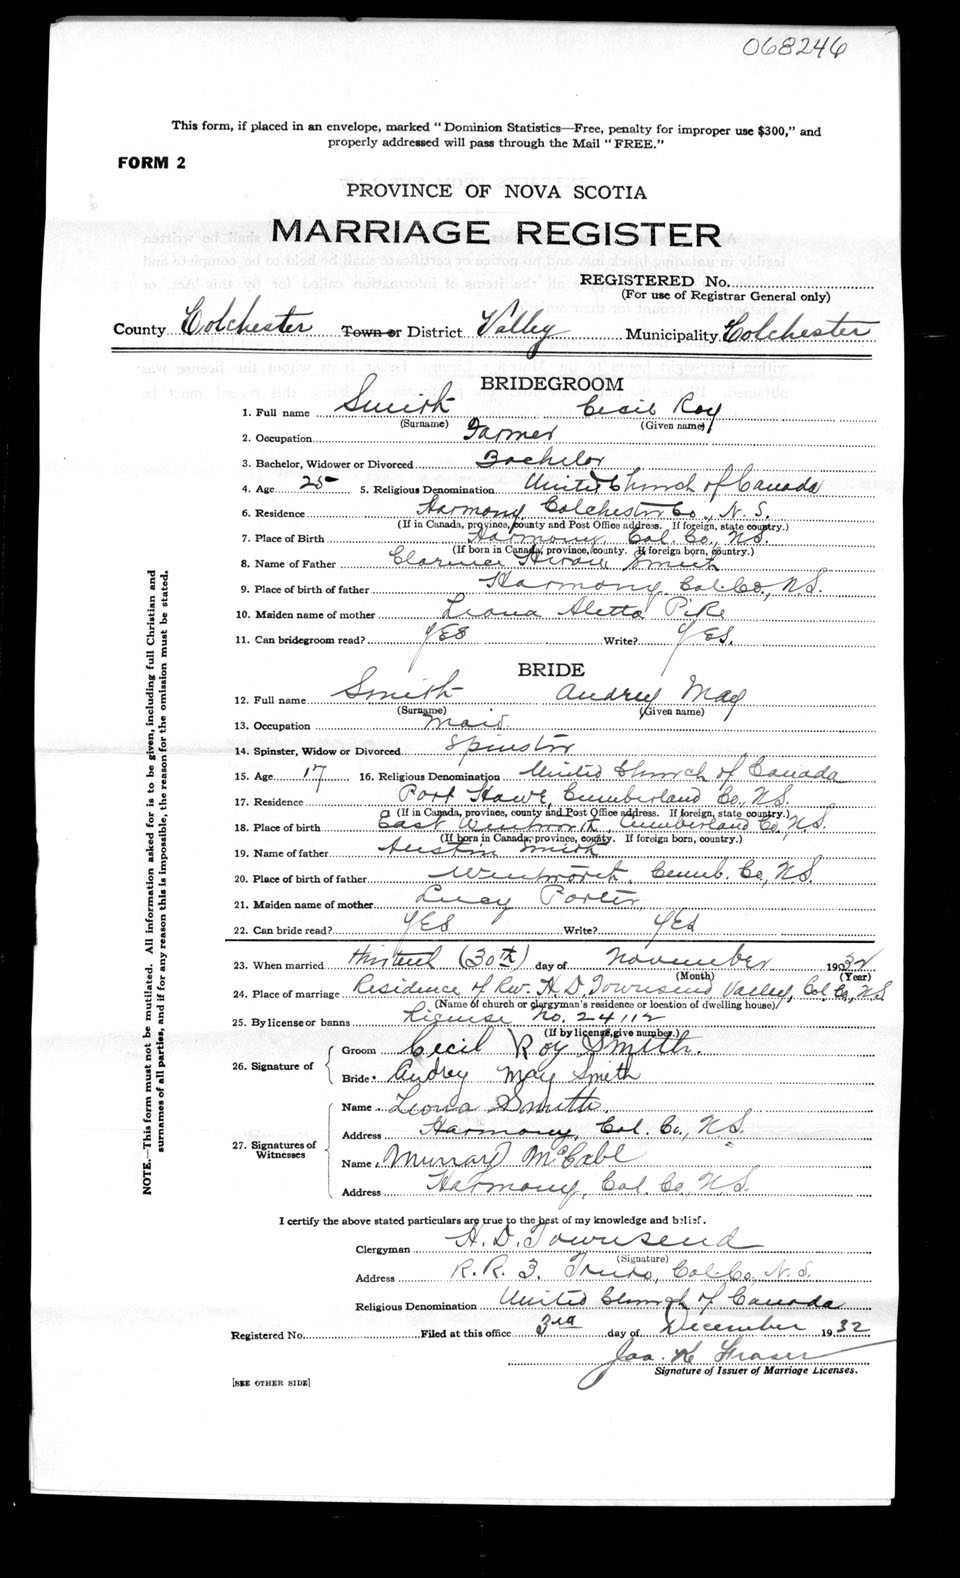 068246
This form, if placed in an envelope, marked "Dominion Statistics—Free, penalty for improper use $300," and
properly addressed will pass through the Mail "FREE."
FORM 2
PROVINCE OF NOVA SCOTIA
MARRIAGE REGISTER
REGISTERED No.
(For use of Registrar General only)
County Colchester Town or District Valley Municipality Colchester
BRIDEGROOM
1. Full name Smith Cecil Roy
(Surname) (Given name)
2. Occupation Farmer
3. Bachelor, Widower or Divorced Bachelor
4. Age 25 5. Religious Denomination United Church of Canada
6. Residence Harmony, Colchester Co., N.S.
(If in Canada, province, county and Post Office address. If foreign, state country.)
7. Place of Birth Harmony, Col. Co., N.S.
(If born in Canada, province, county. If foreign born, country.)
8. Name of Father Clarence Smith
9. Place of birth of father Harmony, Col. Co., N.S.
10. Maiden name of mother Leona Aletta Pike
11. Can bridegroom read? YES Write? YES.
BRIDE
12. Full name Smith Audrey May
(Surname) (Given name)
13. Occupation Maid
14. Spinster, Widow or Divorced Spinster
15. Age 17 16. Religious Denomination United Church of Canada
17. Residence Port Howe, Cumberland Co., N.S.
(If in Canada, province, county and Post Office address. If foreign, state country.)
18. Place of birth East Wentworth, Cumberland Co., N.S.
(If born in Canada, province, county. If foreign born, country.)
19. Name of father Austin Smith
20. Place of birth of father Wentworth, Cumb. Co., N.S.
21. Maiden name of mother Lucy Porter
22. Can bride read? YES Write? YES
23. When married (30th) day of November 1932
(Month) (Year)
24. Place of marriage Residence of Rev. H. D. Townsend Valley, Col. Co., N.S.
(Name of church or clergyman's residence or location of dwelling house)
25. By license or banns License No. 24112
(If by license, give number.)
26. Signature of
Groom Cecil Roy Smith.
Bride Audrey May Smith
27. Signatures of Witnesses
Name Leona Smith
Address Harmony, Col. Co., N.S.
Name Murray McCabe
Address Harmony, Col. Co., N.S.
I certify the above stated particulars are true to the best of my knowledge and belief.
Clergyman H. D. Townsend
(Signature)
Address R. R. 3, Truro, Col. Co., N.S.
Religious Denomination United Church of Canada
Registered No. Filed at this office 3rd day of December 1932
Jas. K Fraser
Signature of Issuer of Marriage Licenses.
[SEE OTHER SIDE]
NOTE.—This form must not be mutilated. All information asked for is to be given, including full Christian and
surnames of all parties, and if for any reason this is impossible, the reason for the omission must be stated.